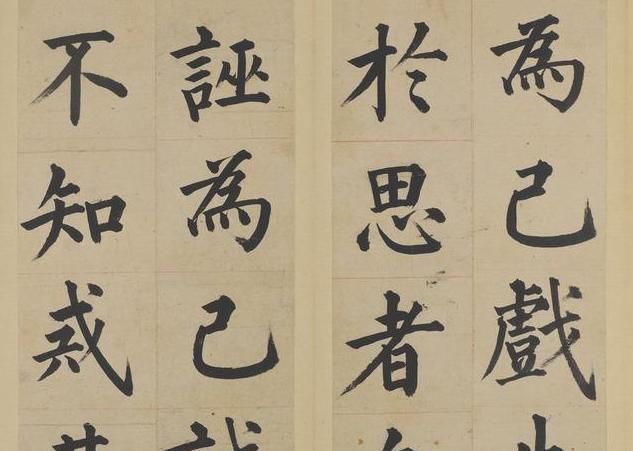 為己戲
於思者
誣為己
不知戒